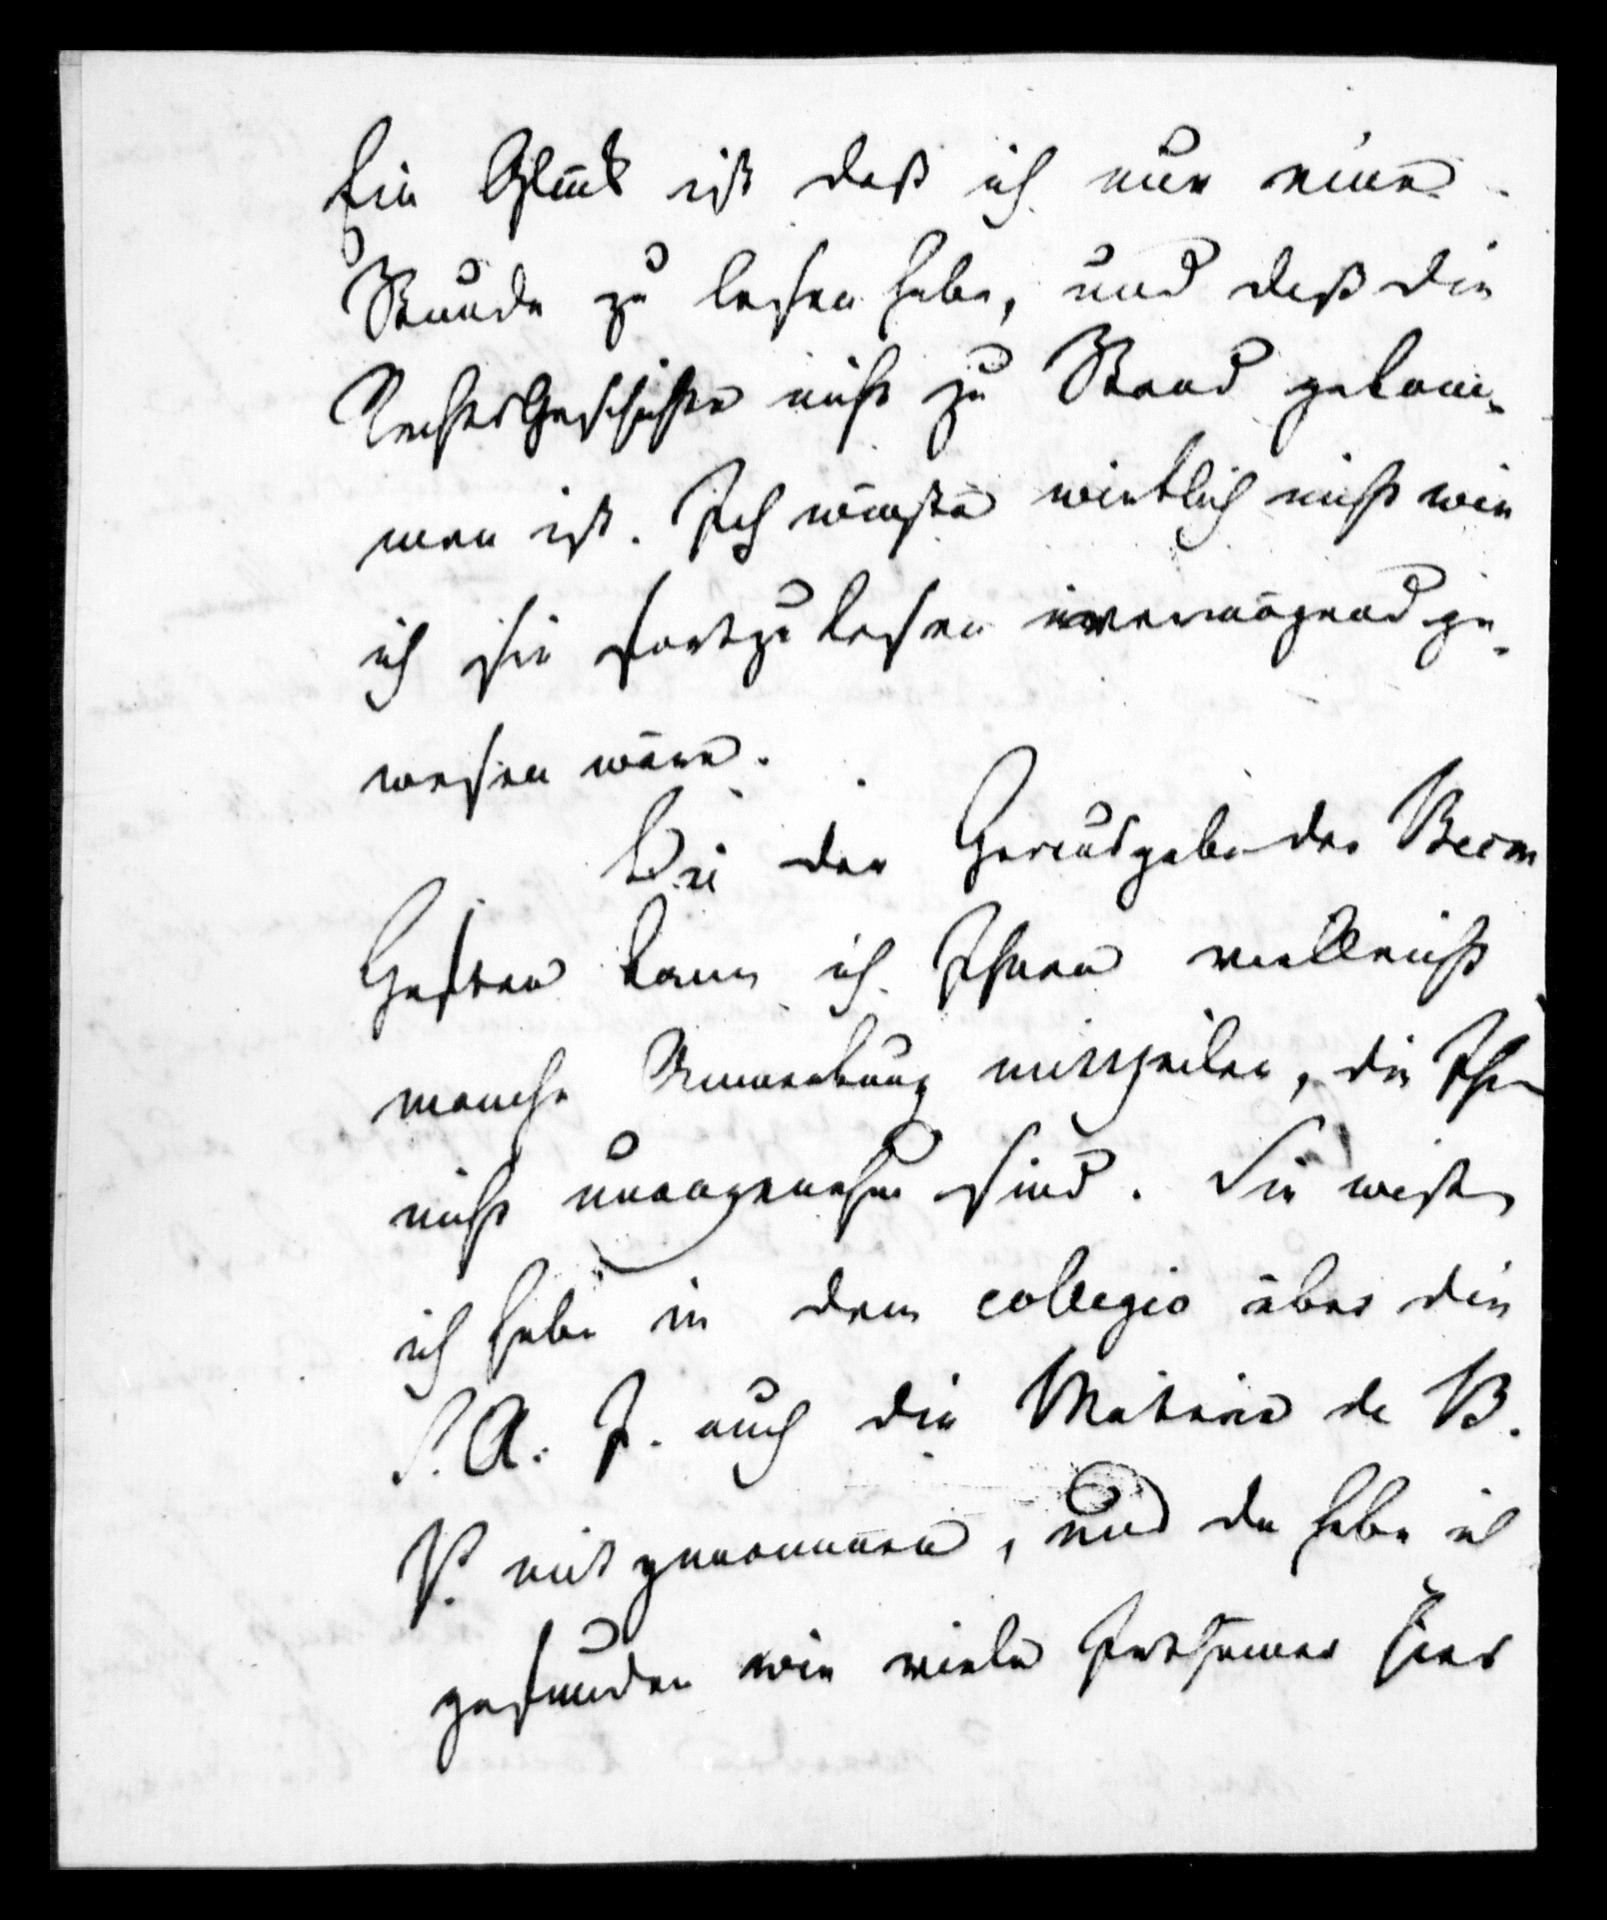 Ein Glück ist daß ich nur eine
Stunde zu lesen habe, und daß die
RechtsGeschichte nicht zu Stand gekom-
men ist. Ich wüßte wirklich nicht wie
ich sie fortzulesen vermögend ge-
wesen wäre.
Bei der Herausgabe der
Heften kann ich Ihnen vielleicht
manche Anmerkung mittheilen, die Ihnen
nicht unangenehm sind. Sie wissen
ich habe in dem collegio über die
S. R. J. auch die Materie de B.
P. mitgenommen, und da habe ich
gefunden wie viele Irrthümer hier